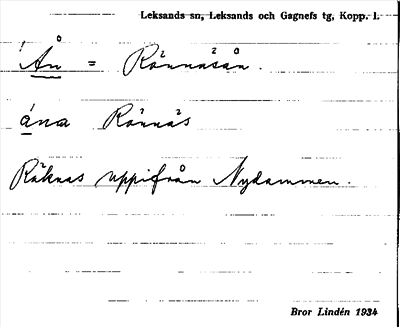 Leksands sn, Leksands och Gagnefs tg, Kopp. l.
Ån = Rännäsån.
ána Rännäs
Räknas uppifrån Nydammen.
Bror Lindén 1934